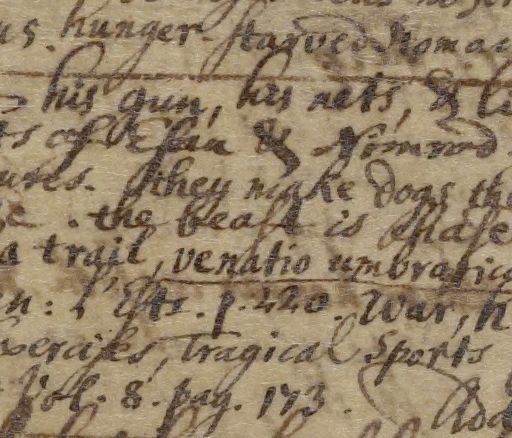 us. hunger starved stomac
his gun, his nets, & li
ts of Esau & Nimrod
ures. they make dogs the
the beast is chase
a trail, venatio umbratic
n: l'Estr. p. 220. War, h
xercises, Tragical Sports
Vol. 8. pag. 173.